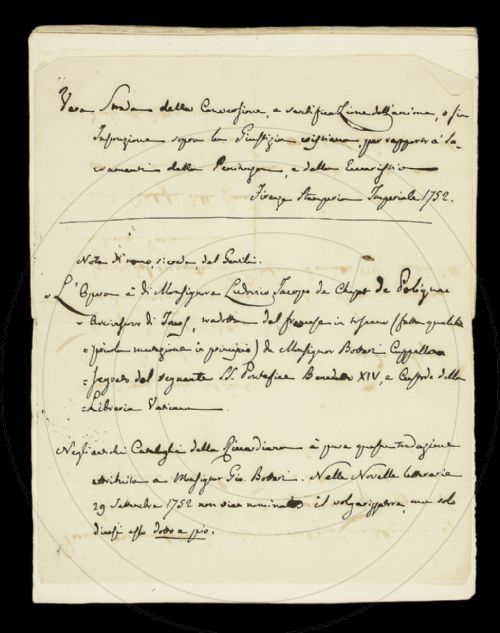 Vera Strada della Conversione, e santificazione dell'anime, o sia
Instruzione sopra la Giustizia cristiana, per rapporto a' Sa-
cramenti della Penitenza, e della Eucaristia
Firenze Stamperia Imperiale 1752.
Nota di mano sicura del Gentili.
" L'Opera è di Monsignore Lodovico Jacopo de Chapt de
" Arcivescovo di Tours, tradotta dal francese in toscano (fatta qualche
= piccola mutazione in principio) da Monsignor Bottari Cappellano
= segreto del regnante SS. Pontefice Benedetto XIV, e Custode della
= Libreria Vaticana
Negli antichi Cataloghi della Riccardiana è pure questa traduzione
attribuita a Monsignor Gio. Bottari. Nelle Novelle letterarie
29 Settembre 1752 non vien nominato il volgarizzatore, ma solo
dicesi esso dotto e pio.